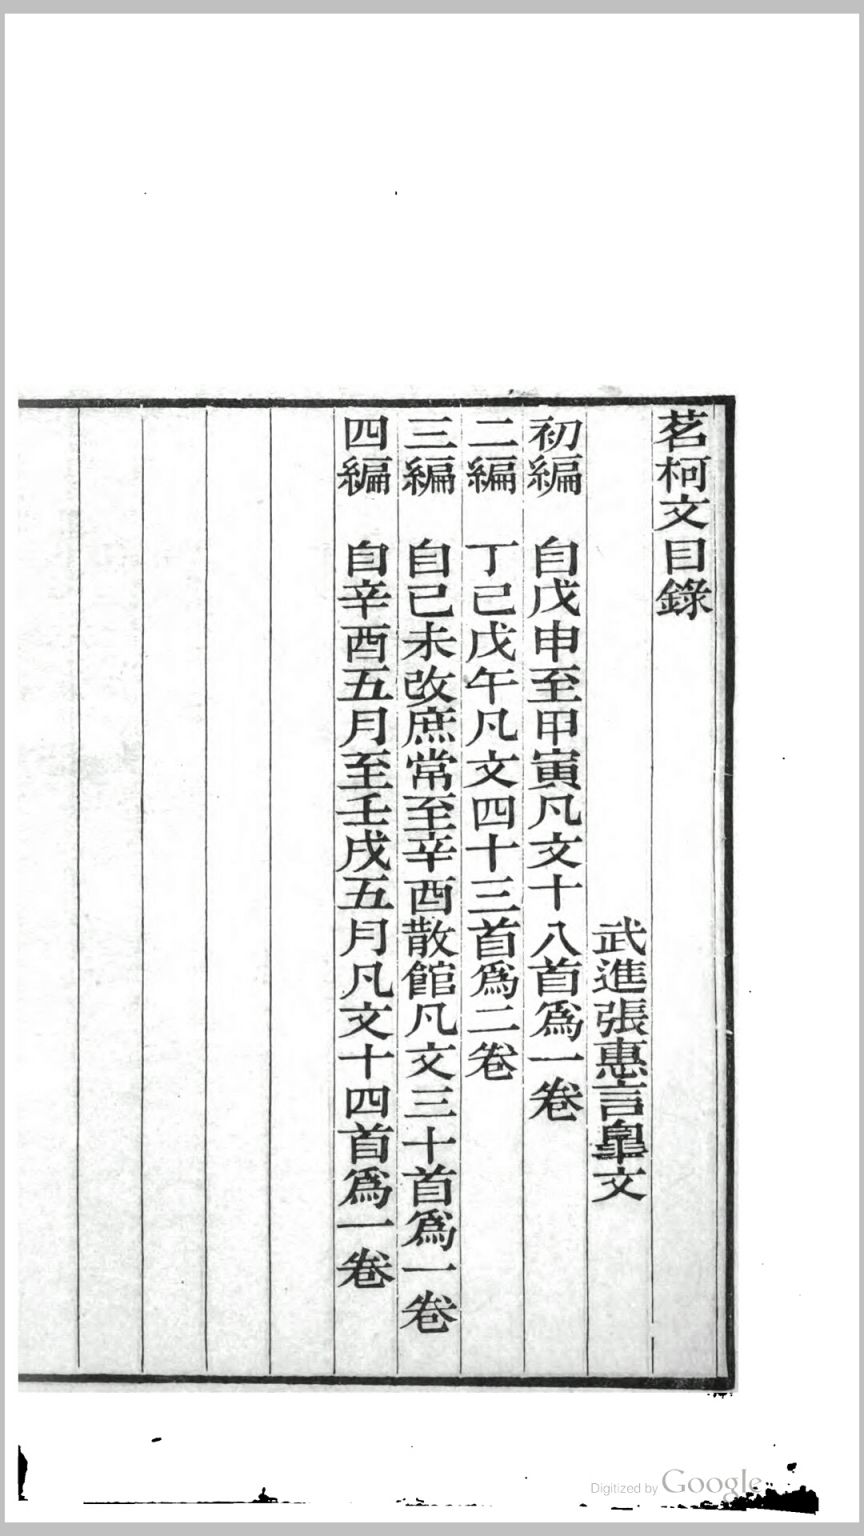 茗柯文目錄
武進張惠言臯文
初編　自戊申至甲寅凡文十八首爲一卷
二編　丁巳戊午凡文四十三首爲二卷
三編　自己未改庶常至辛酉散館凡文三十首爲一卷
四編　自辛酉五月至壬戌五月凡文十四首爲一卷
Digitized by Google